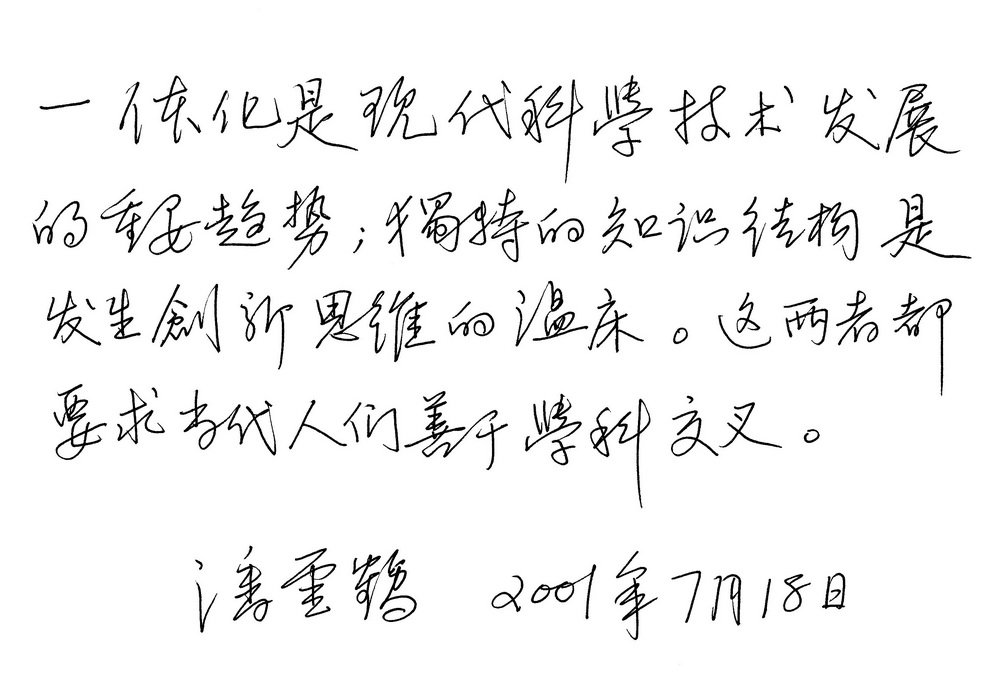 一体化是现代科學技术发展
的重要趋势;獨特的知识结构是
发生創新思维的温床。这两者都
要求当代人们善于學科交叉。
潘雲鶴 2001年7月18日